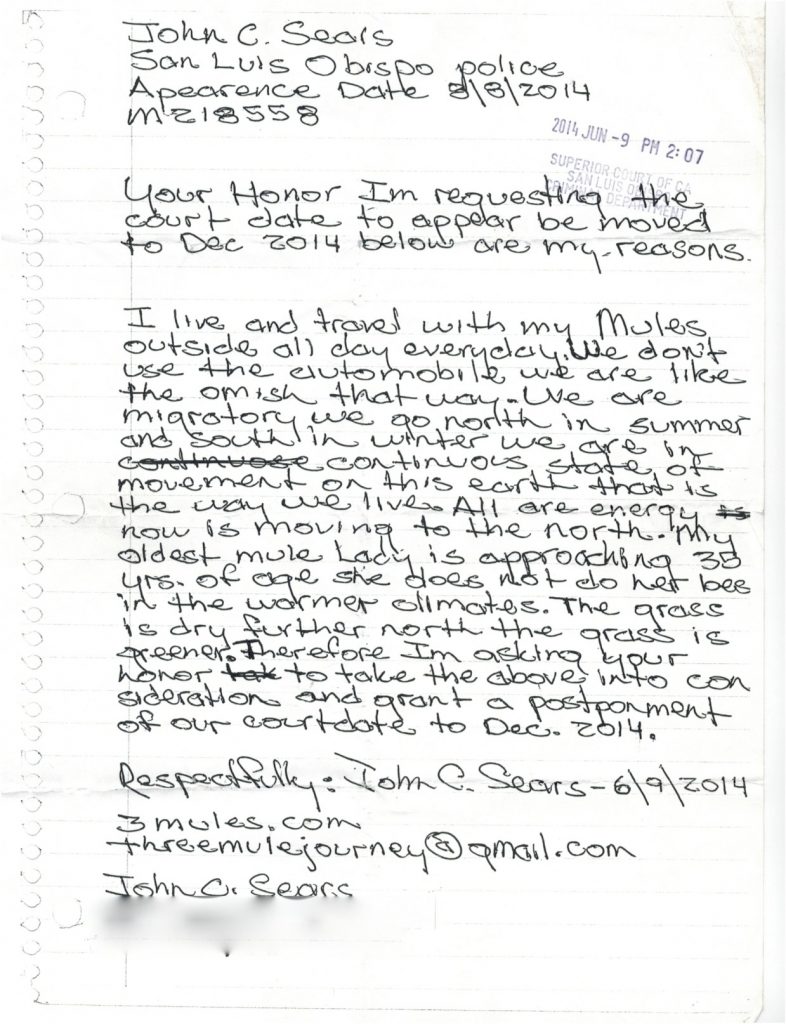 John C. Sears
San Luis Obispo police
Apearence Date 8/8/2014
M218558
2014 JUN -9 PM 2:07
SUPERIOR COURT OF CA
SAN LUIS OBISPO
CRIMINAL DEPARTMENT
Your Honor Im requesting the
court date to appear be moved
to Dec 2014 below are my reasons.
I live and travel with my Mules
outside all day everyday. We don't
use the automobile we are like
the omish that way. We are
migratory we go north in summer
and south in winter we are in
continuose continuous state of
movement on this earth that is
the way we live. All are energy is
now is moving to the north. My
oldest mule Lady is approaching 35
yrs. of age she does not do her bes
in the warmer climates. The grass
is dry further north the grass is
greener. Therefore Im asking your
honor tak to take the above into con
sideration and grant a postponment
of our courtdate to Dec. 2014.
Respectfully: John C. Sears - 6/9/2014
3mules.com
threemulejourney@gmail.com
John C. Sears